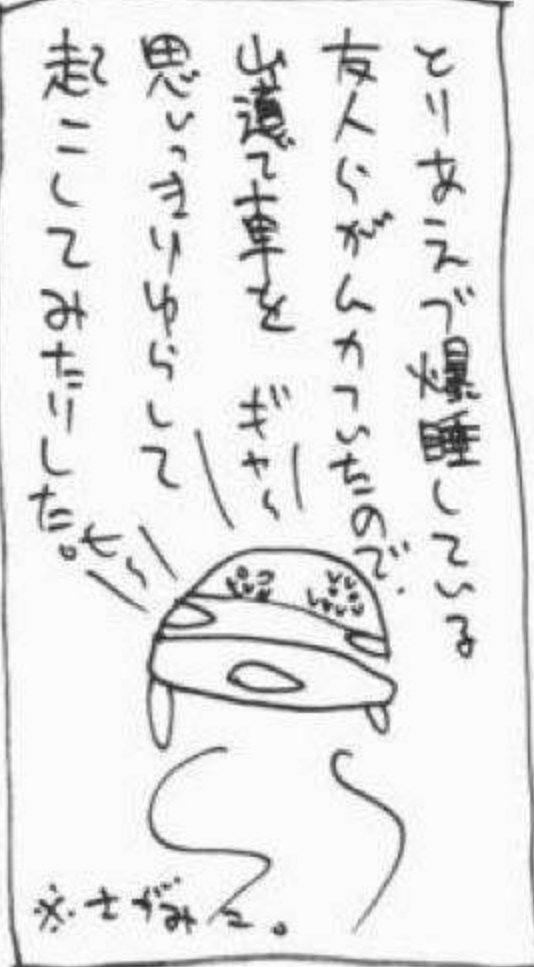 とりあえず爆睡している
友人らがムカついたので、
山道で車を
思いっきりゆらして
起こしてみたりした。
ギャー
ヒー
※さがみこ。